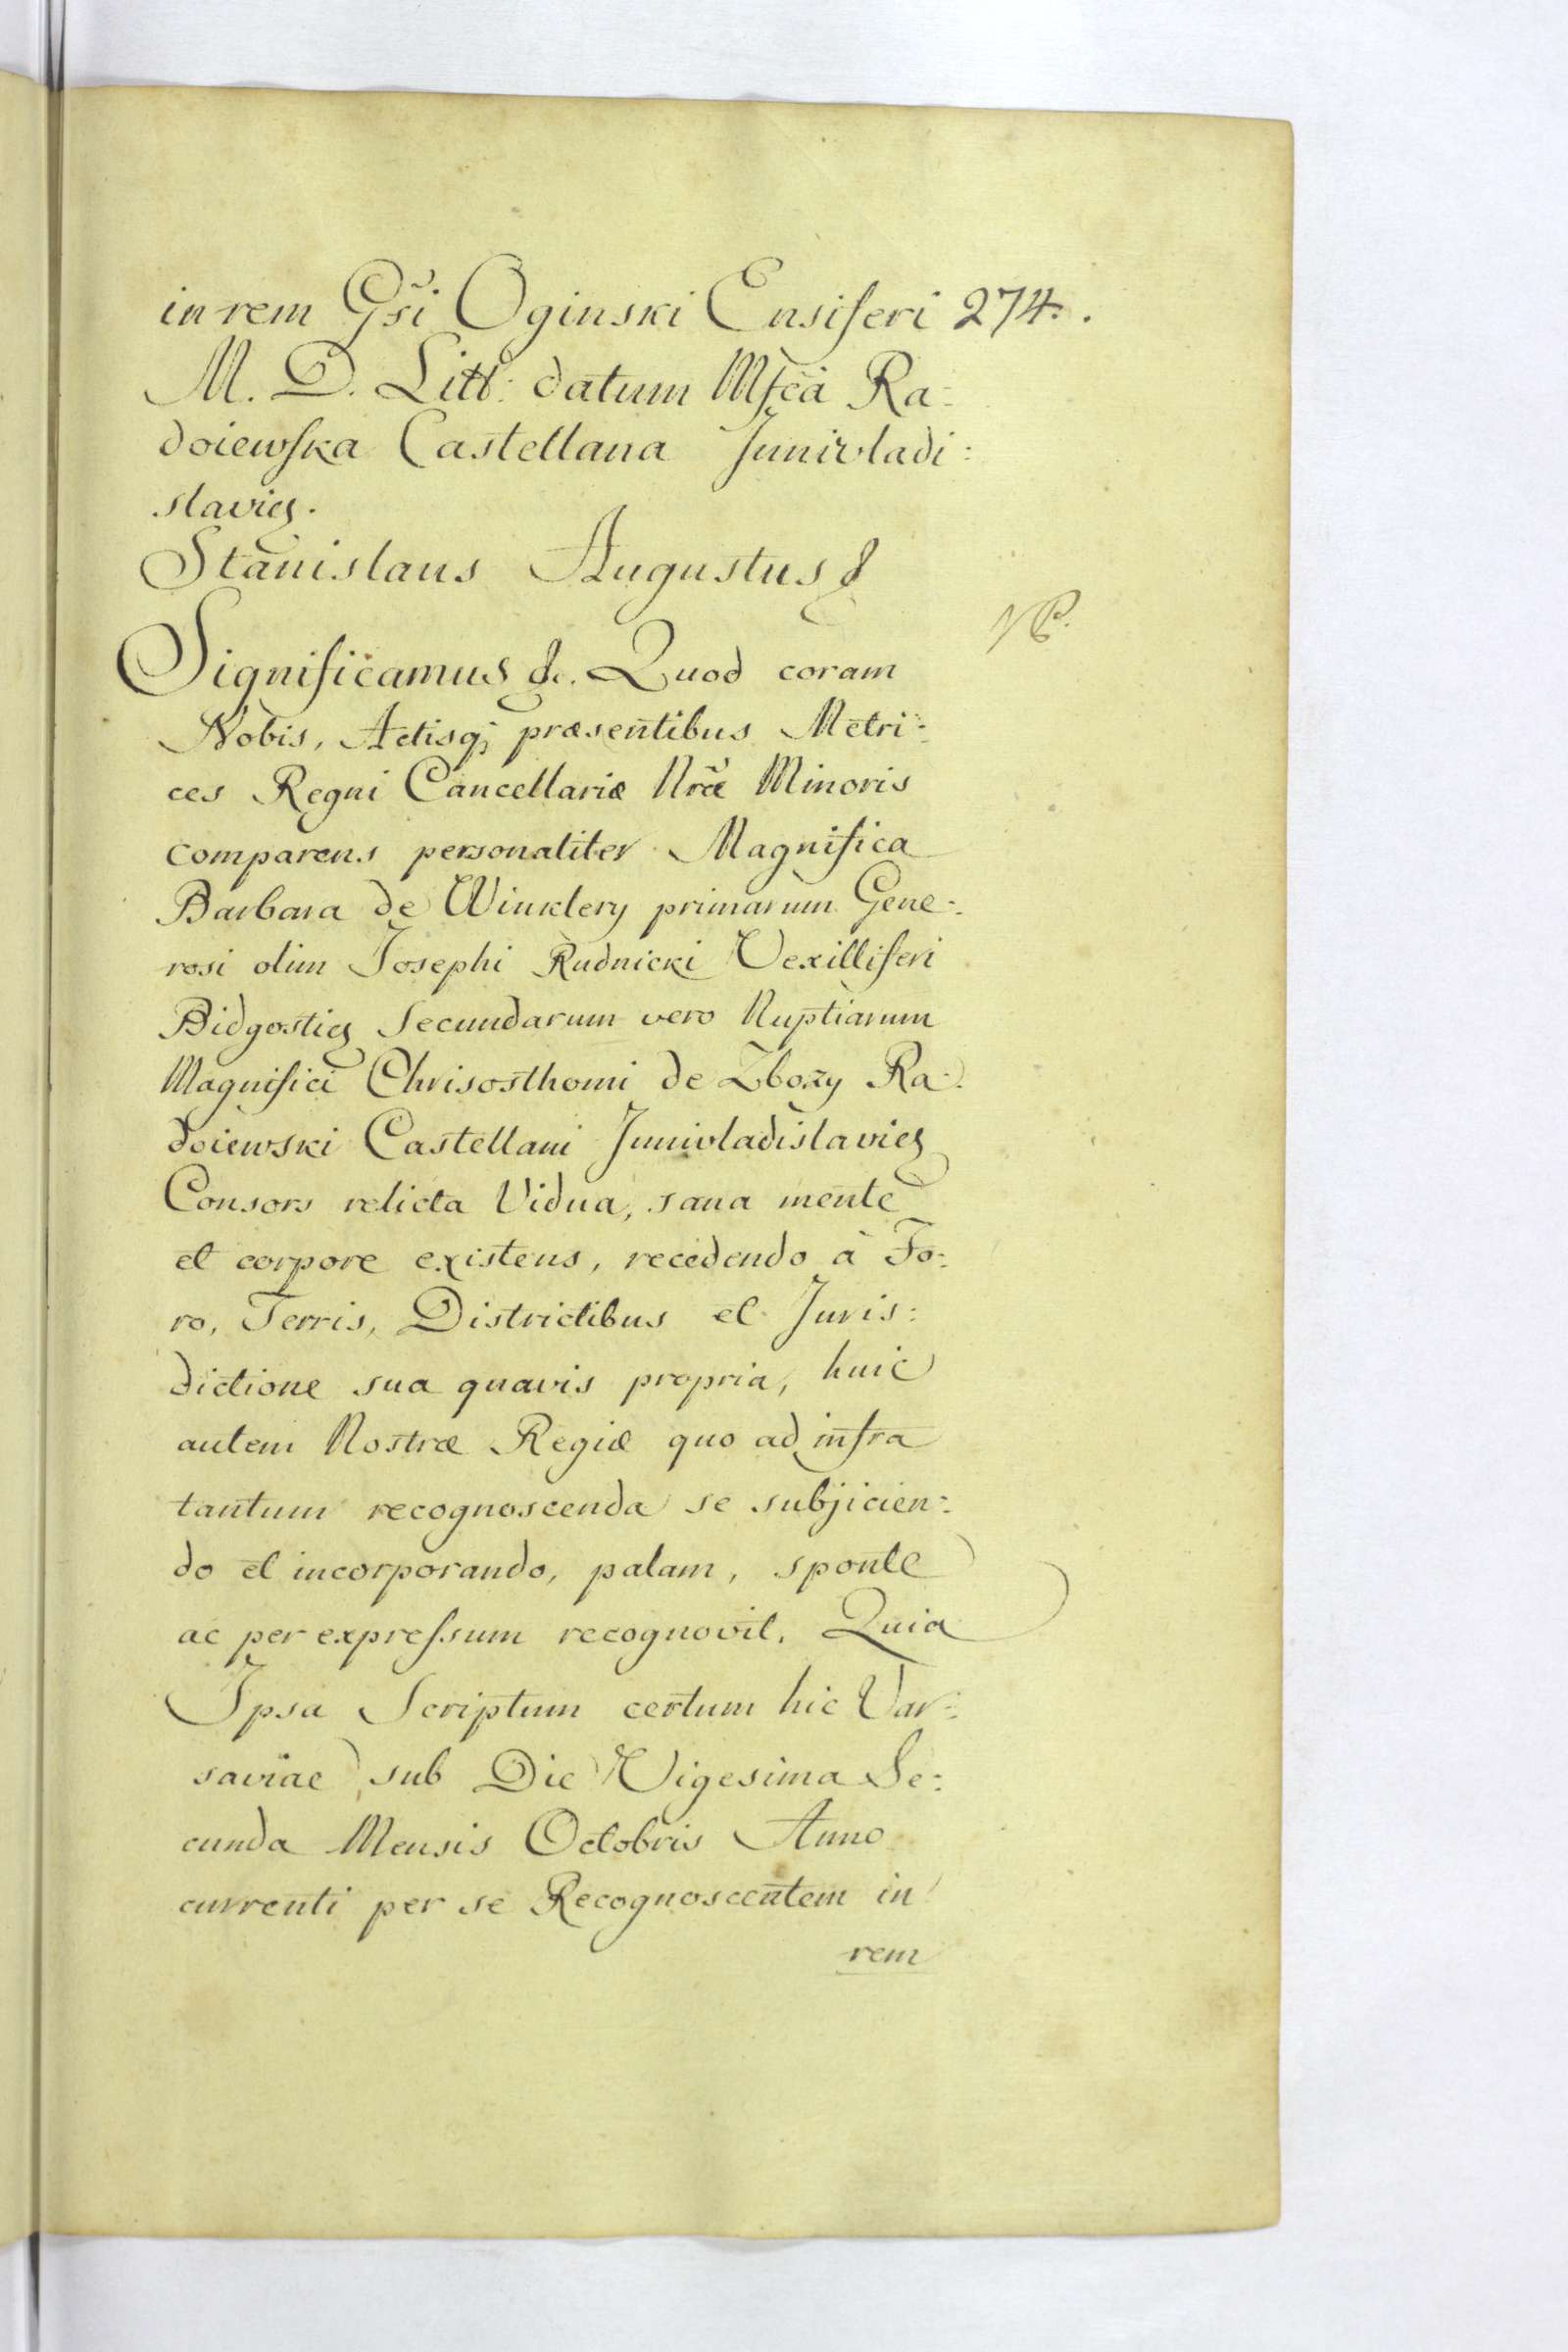 in rem Gsi Oginski Ensiferi 274.
M. D. Litt: datum Mfca Ra:
doiewska Castellana Junivladi:
slavies.
Stanislaus Augustus &
Significamus &c. Quod coram
Nobis, Actisq; præsentibus Metri:
ces Regni Cancellariæ Nræ Minoris
comparens personaliter Magnifica
Barbara de Winklery primarum Gene:
rosi olim Josephi Rudnicki Vexilliferi
Bidgosties Secundarum vero Nuptiarum
Magnifici Chrisosthomi de Zbozy Ra:
doiewski Castellani Junivladislavies
Consors relicta Vidua, sana mente
et corpore existens, recedendo à Fo:
ro, Terris, Districtibus et Juris:
dictione sua quavis propria, huic
autem Nostræ Regiæ quo ad infra
tantum recognoscenda se subjicien:
do et incorporando, palam, sponte
ac per expressum recognovit, Quia
Ipsa Scriptum certum hic Var:
saviae, sub Die Vigesima Se:
cunda Mensis Octobris Anno
currenti per se Recognoscentem in
rem